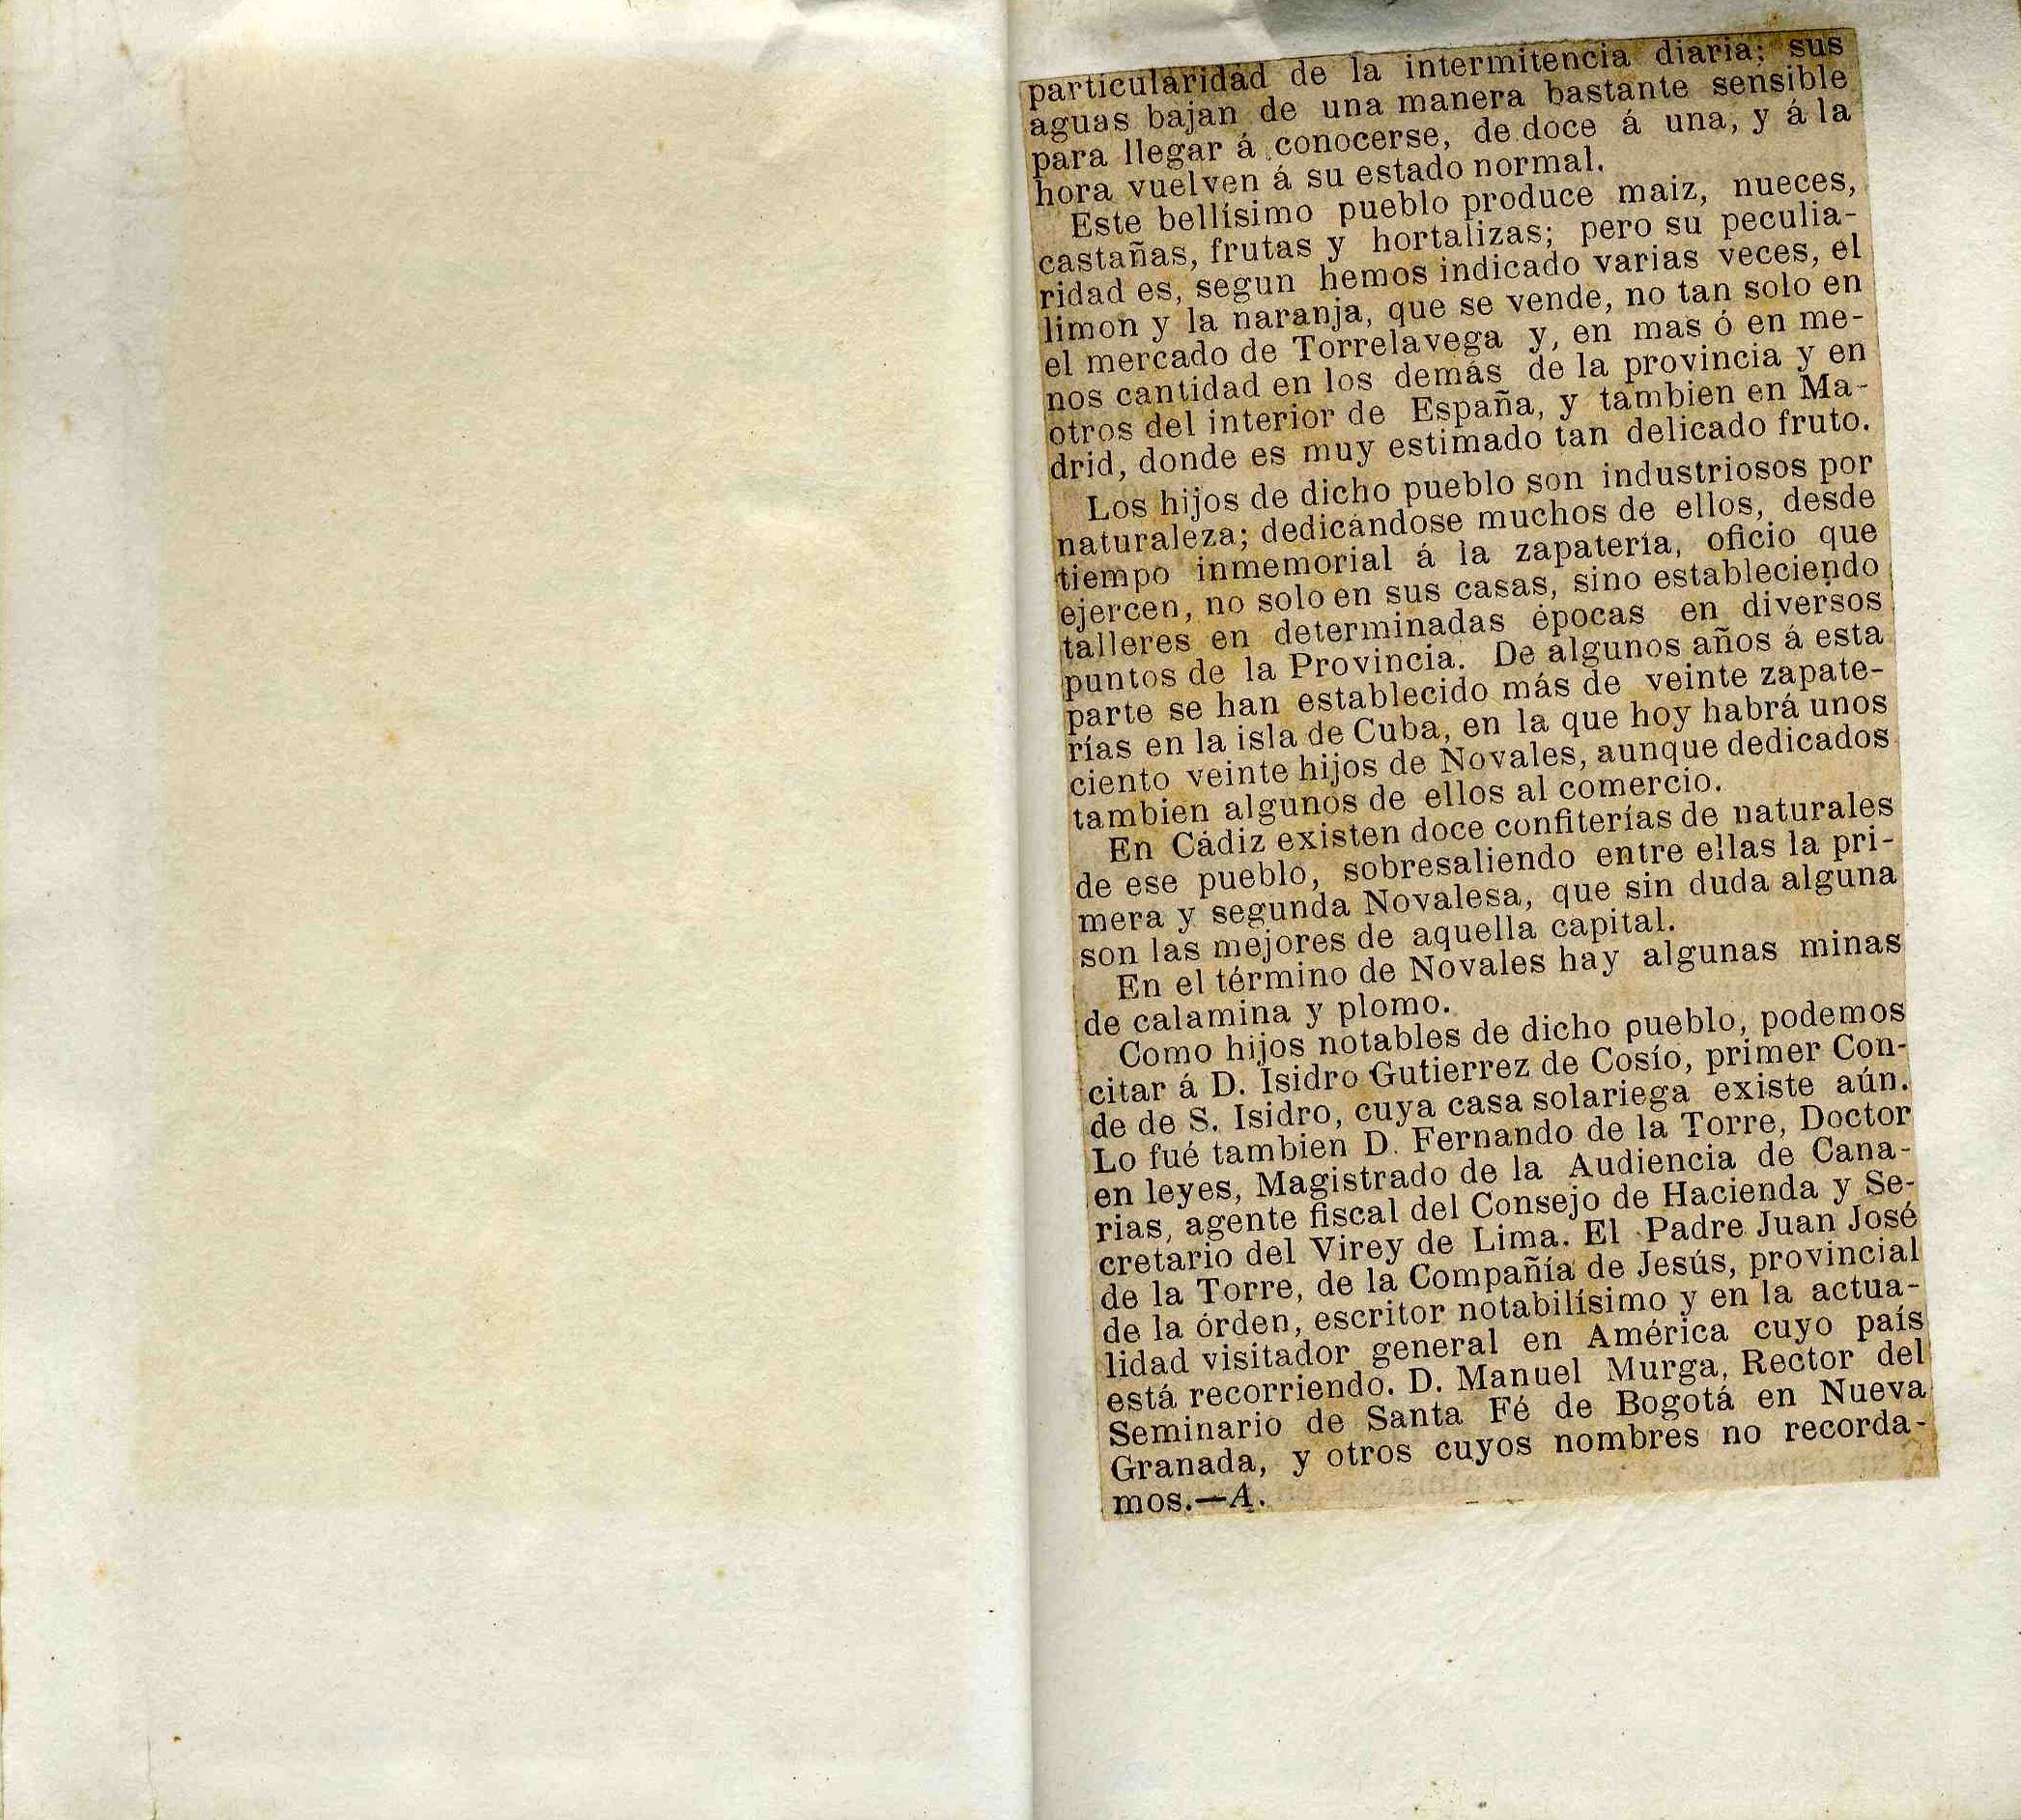 particularidad de la intermitencia diaria; sus
aguas bajan de una manera bastante sensible
para llegar á conocerse, de doce á una, y á la
hora vuelven á su estado normal.
Este bellísimo pueblo produce maiz, nueces,
castañas, frutas y hortalizas; pero su peculia-
ridad es, segun hemos indicado varias veces, el
limon y la naranja, que se vende, no tan solo en
el mercado de Torrelavega y, en mas ó en me-
nos cantidad en los demás de la provincia y en
otros del interior de España, y tambien en Ma-
drid, donde es muy estimado tan delicado fruto.
Los hijos de dicho pueblo son industriosos por
naturaleza; dedicándose muchos de ellos, desde
tiempo inmemorial á la zapatería, oficio que
ejercen, no solo en sus casas, sino estableciendo
talleres en determinadas épocas en diversos
puntos de la Provincia. De algunos años á esta
parte se han establecido más de veinte zapate-
rías en la isla de Cuba, en la que hoy habrá unos
ciento veinte hijos de Novales, aunque dedicados
tambien algunos de ellos al comercio.
En Cádiz existen doce confiterías de naturales
de ese pueblo, sobresaliendo entre ellas la pri-
mera y segunda Novalesa, que sin duda alguna
son las mejores de aquella capital.
En el término de Novales hay algunas minas
de calamina y plomo.
Como hijos notables de dicho pueblo, podemos
citar á D. Isidro Gutierrez de Cosío, primer Con-
de de S. Isidro, cuya casa solariega existe aún.
Lo fué tambien D. Fernando de la Torre, Doctor
en leyes, Magistrado de la Audiencia de Cana-
rias, agente fiscal del Consejo de Hacienda y Se-
cretario del Virey de Lima. El Padre Juan José
de la Torre, de la Compañía de Jesús, provincial
de la órden, escritor notabilísimo y en la actua-
lidad visitador general en América cuyo país
está recorriendo. D. Manuel Murga, Rector del
Seminario de Santa Fé de Bogotá en Nueva
Granada, y otros cuyos nombres no recorda-
mos.—A.